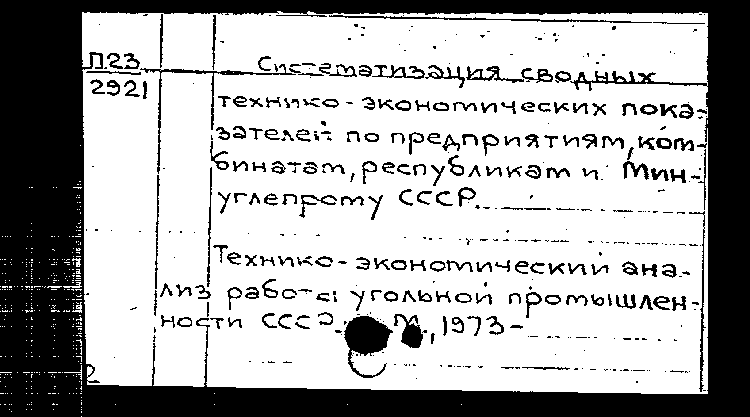 П23
2921
Систематизация сводных
технико-экономических пока-
зателей по предприятиям, ком-
бинатам, республикам и Мин-
углепрому СССР.
Технико-экономический ана-
лиз работы угольной промышлен-
ности СССР. М., 1973-